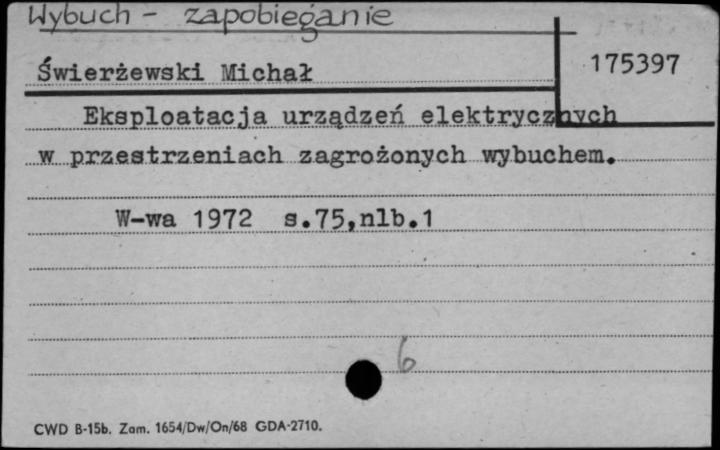 Wybuch - zapobieganie
175397
Świerżewski Michał
Eksploatacja urządzeń elektrycznych
w przestrzeniach zagrożonych wybuchem.
W-wa 1972 s.75,nlb.1
6
CWD B-15b. Zam. 1654/Dw/On/68 GDA-2710.